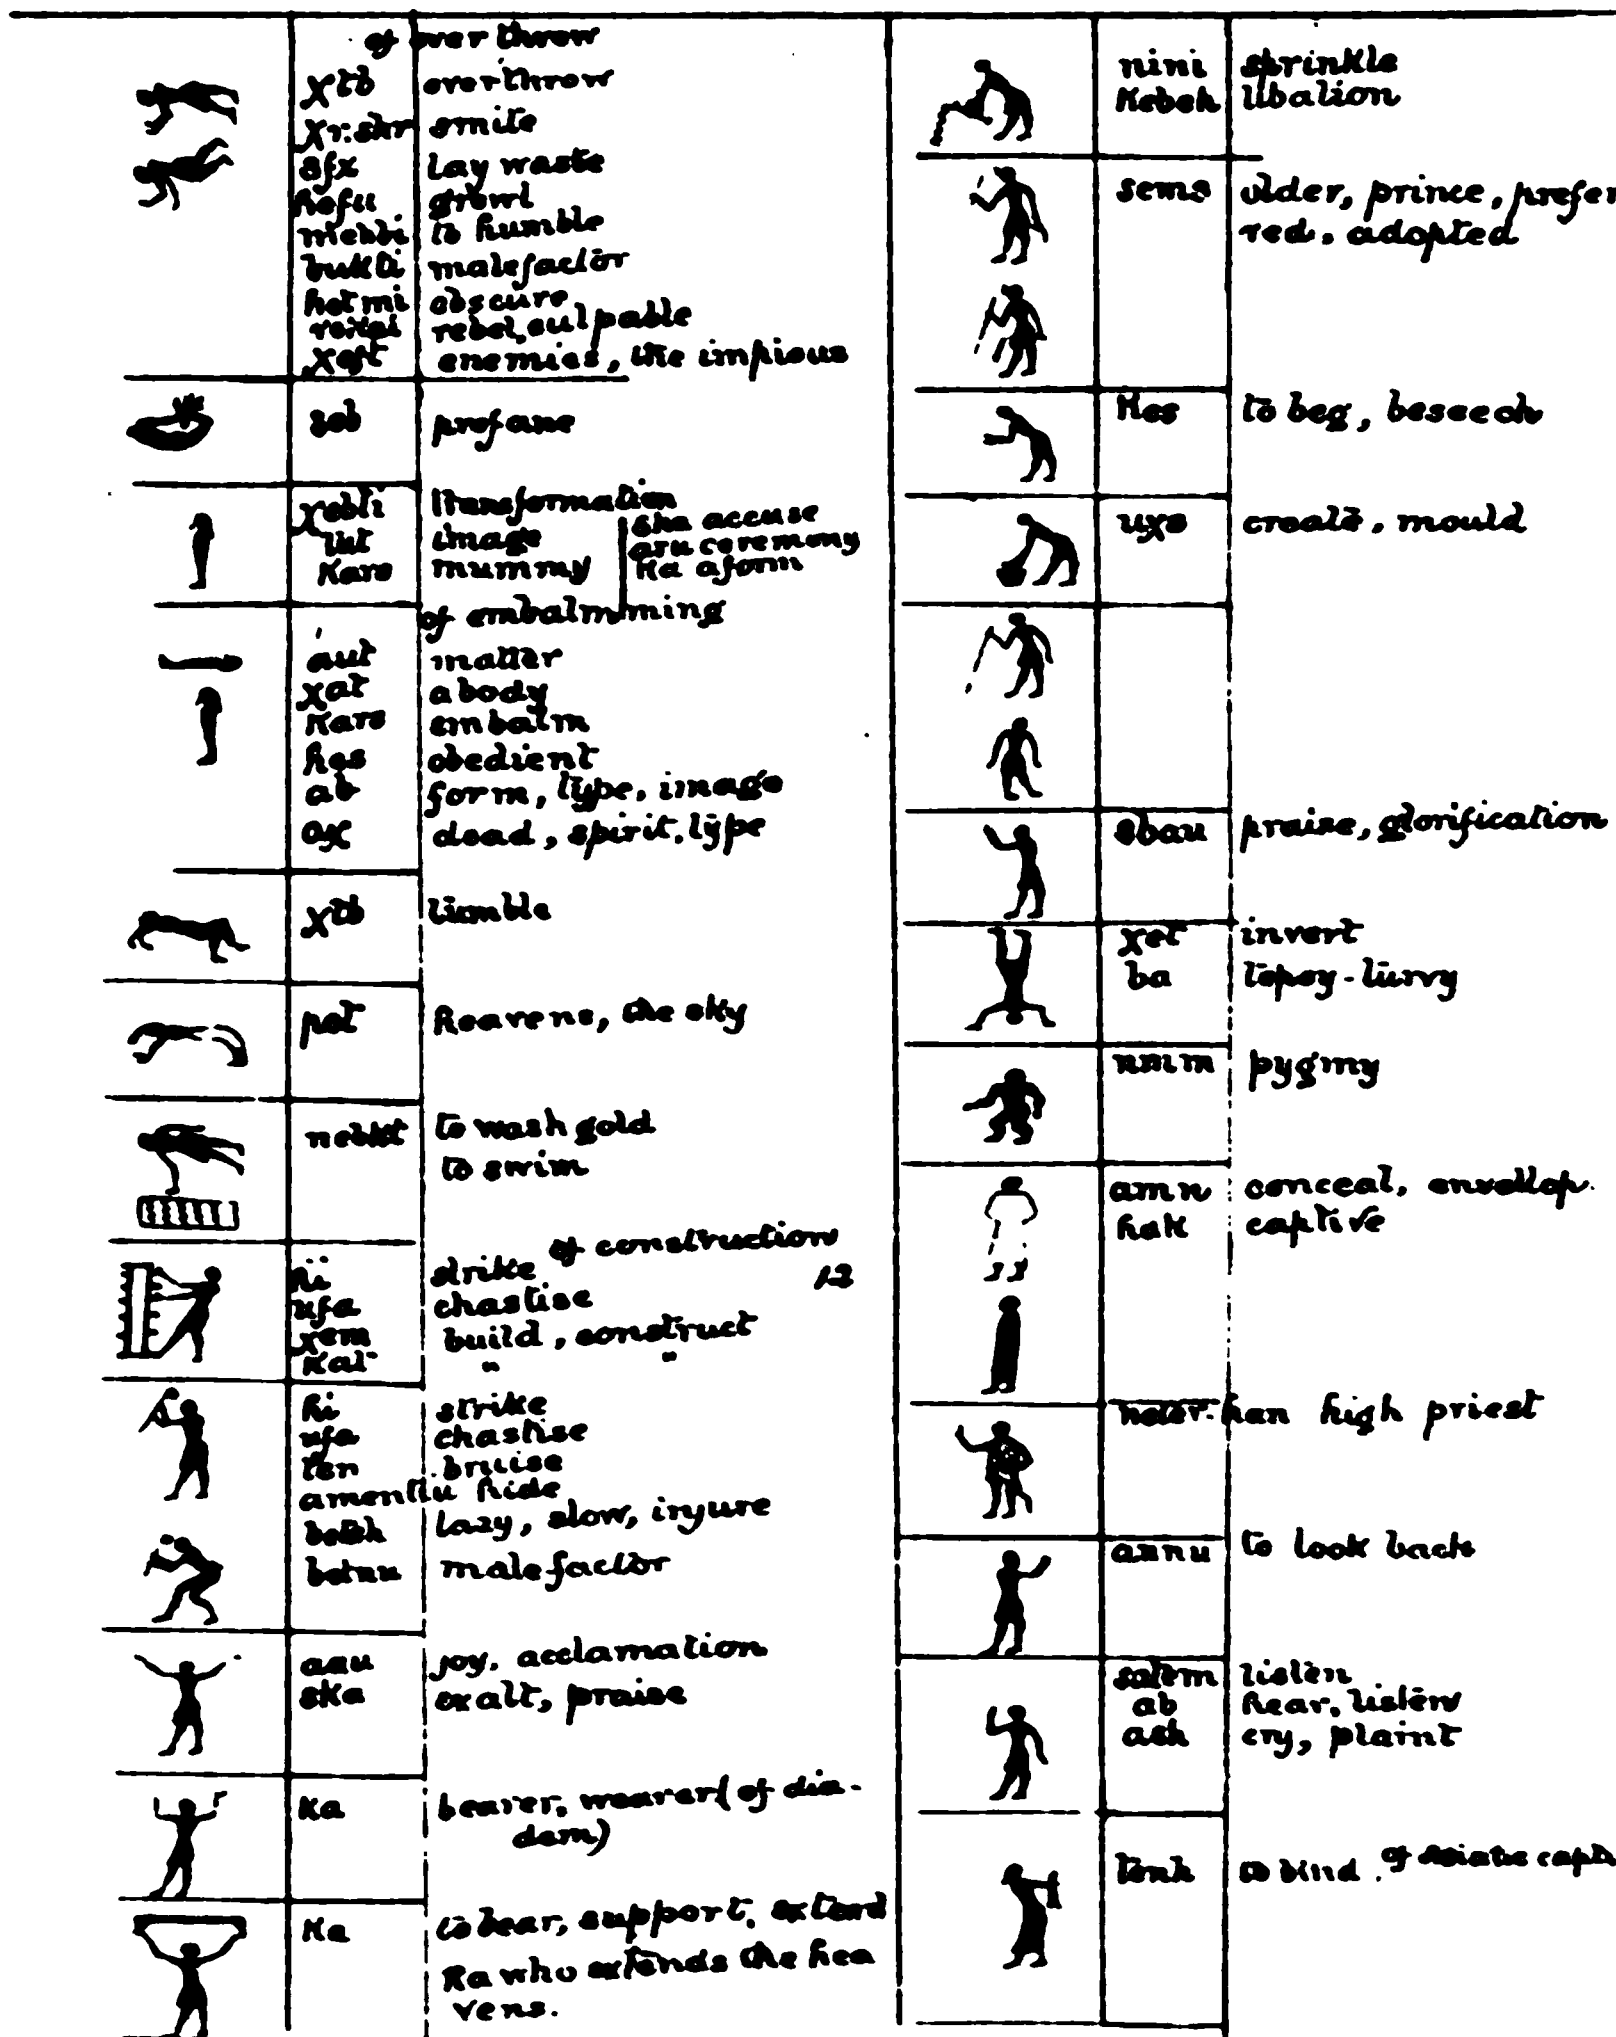 of overthrow
χtb overthrow
χr.skr smite
sfχ lay waste
hefu growl
to humble
malefactor
hetmi obscure
rebel, culpable
χeft enemies, the impious
seb profane
χebti transformation
tut image
Kars mummy
accuse
aru ceremony
Ka a form
of embalmming
aut matter
χat a body
Kars embalm
hes obedient
ab form, type, image
aχ dead, spirit, type
χtb tumble
pet heavens, the sky
to wash gold
to swim
of construction
hi strike 12
ufa chastise
χem build, construct
Kat " "
hi strike
ufa chastise
ten bruise
amentiu hide
betsh lazy, slow, injure
betnu malefactor
aau joy, acclamation
ska exalt, praise
Ka bearer, wearer (of dia-
dem)
Ka to bear, support, extend
Ra who extends the hea
vens.
nini sprinkle
Kebeh libation
sems older, prince, prefer
red, adopted
Kes to beg, beseech
uχs create, mould
sbau praise, glorification
χet invert
ba topsy-turvy
nmm pygmy
amn conceal, envellop.
hak captive
neter-han high priest
annu to look back
satem listen
ab hear, listen
ash cry, plaint
tenh to bind. of